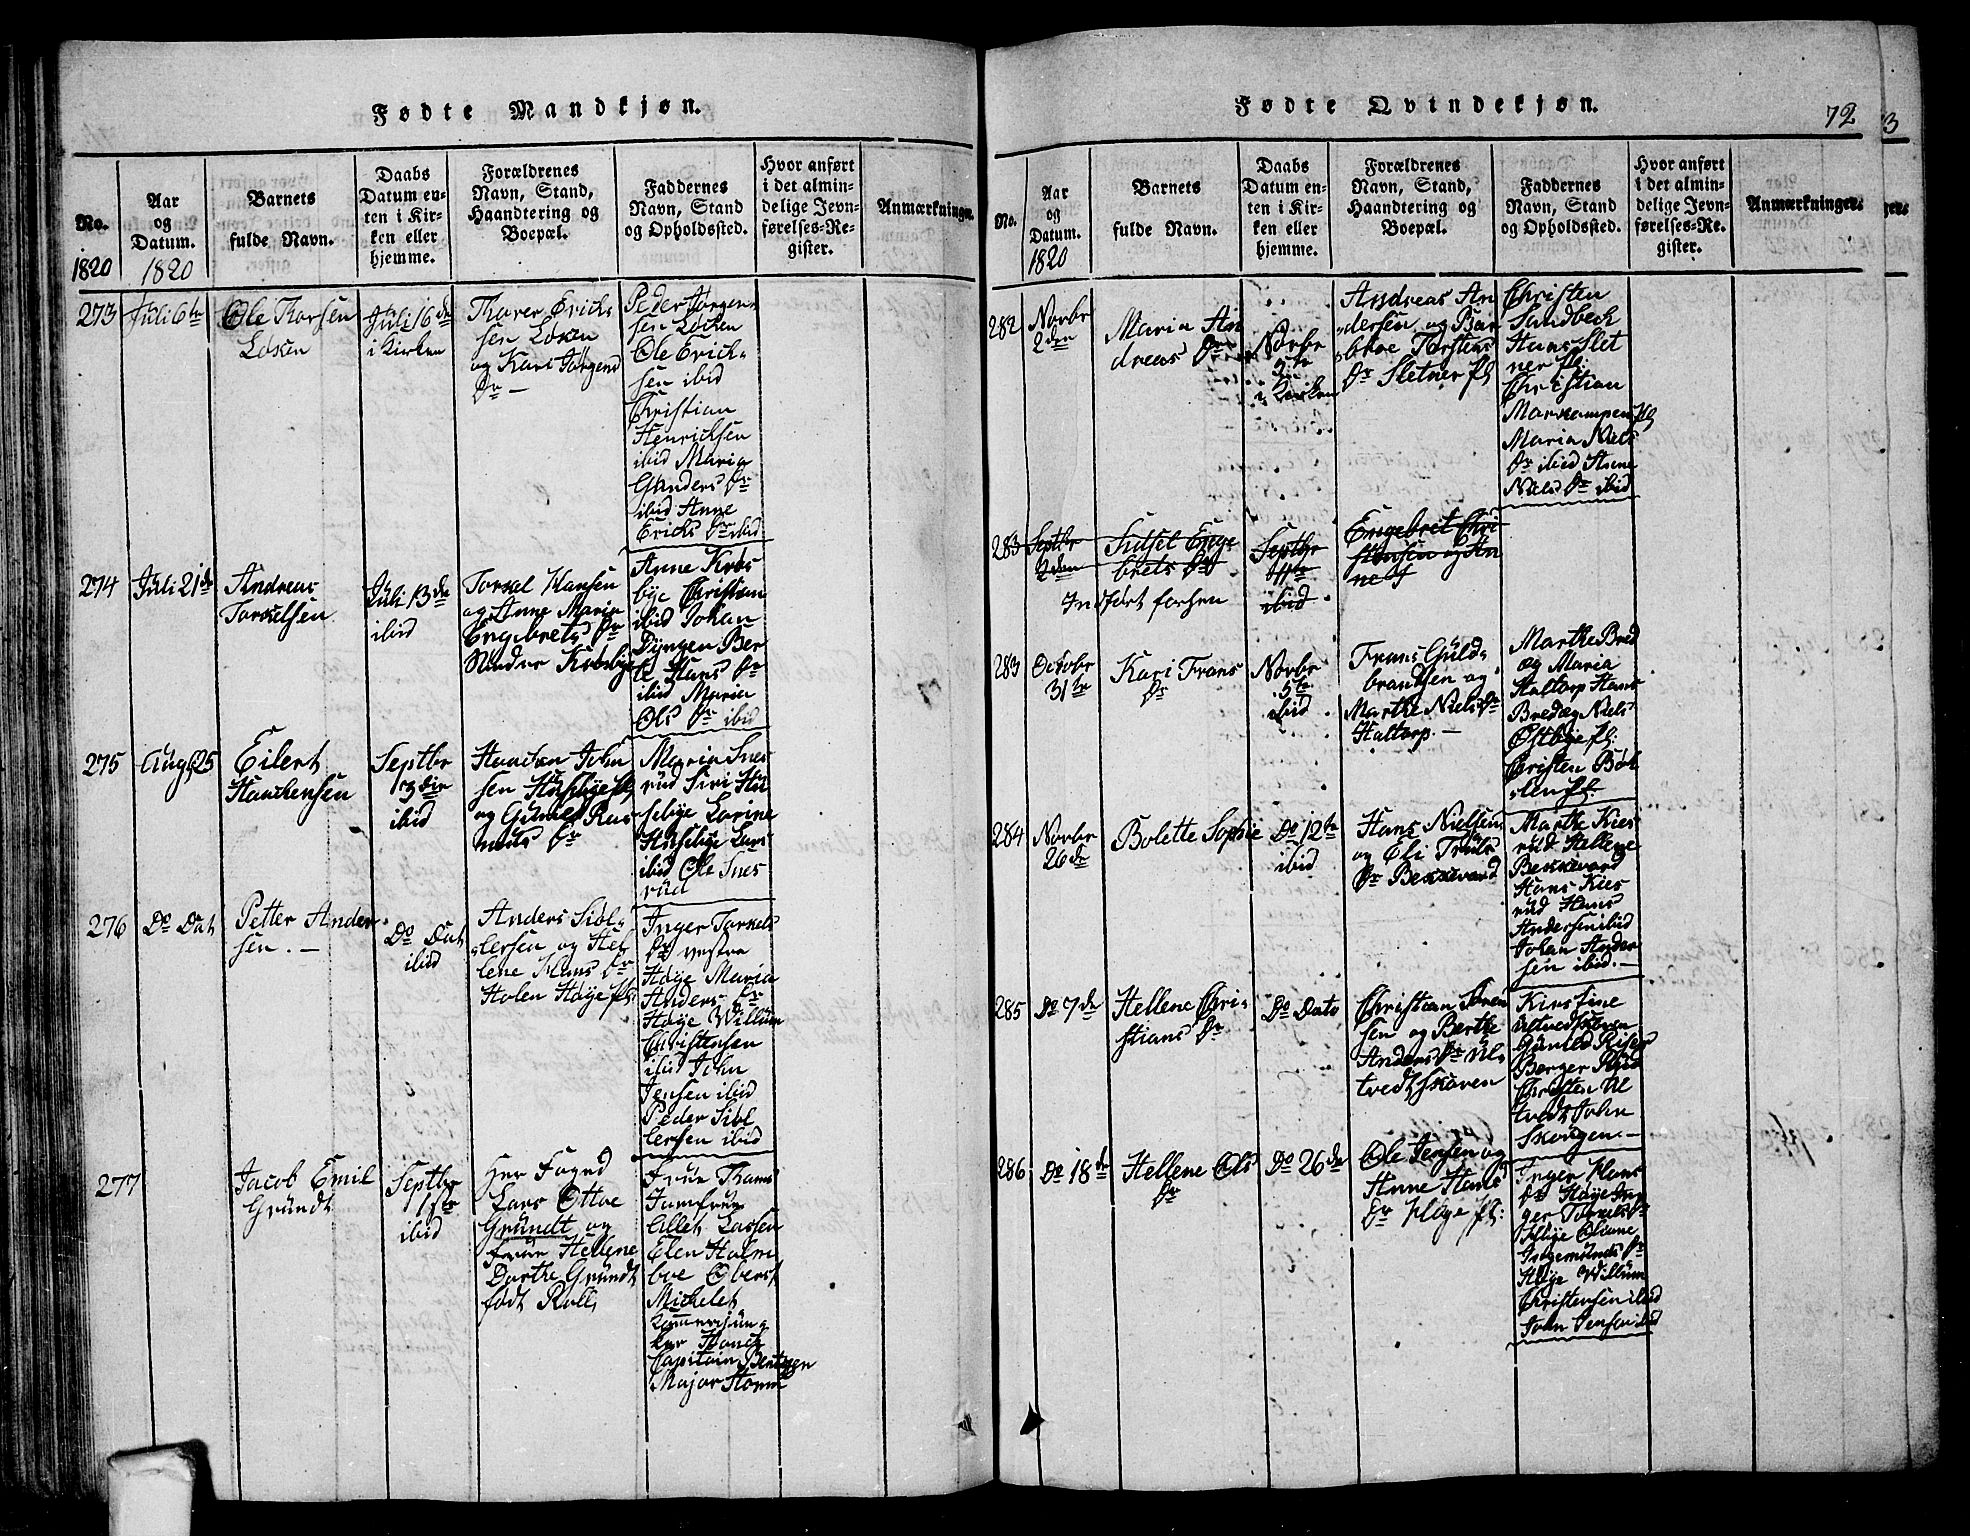 Fødte Mandkjøn.
No.
1820
Aar
og
Datum.
1820
Barnets
fulde Navn.
Daabs
Datum en-
ten i Kir-
ken eller
hjemme.
Forældrenes
Navn, Stand,
Haandtering og
Boepæl.
Faddernes
Navn, Stand
og Opholdssted.
Hvor anført
i det almin-
delige Jevn-
førelses-Re-
gister.
Anmærkninger.
273
Juli 6te
Ole Thorsen
Løken
Juli 16de
i Kirken
Thorer Erich-
sen Løken
og Kari Jørgens
Dr —
Peder Jørgen-
sen Løcken
Ole Erich-
sen ibid
Christian
Henrichsen
ibid Maria
Gunders Dr
ibid Anne
Erichs Dr ibid
274
Juli 21de
Andreas
Torkelsen
Juli 13de
ibid
Torkel Hansen
og Anne Marie
Engebrets Dr
Krosbye
Anne Kros
bye Christian
ibid Johan
Dÿngen Ber
te Hans Dr
ibid Maria
Ols Dr ibid
275
Aug 25
Eilert
Haachensen
Septbr
3die
ibid
Haachen John
sen Husebye
og Gunild Ras
muds Dr
Maria Snes
rud Siri Hu
sebye Larine
Husebye Lars
ibid Ole Snes
rud
276
Do Dat
Petter Ander-
sen. —
Do Dat
ibid
Anders Sibl-
lersen og Hel
lene Hans Dr
Holen Høye
Inger Torkels
Dr vestre
Høye Maria
Anders Dr
Høye Willum
Christensen
ibid John
Jensen ibid
Peder Sibl
lersen ibid
277
Jacob Emil
Gründt
Septbr
ibid
Her Foged
Lars Ottoe
Gründt og
Frue Hellene
Dorthe Gründt
født Roll
Frue Thams
Jomfrue
Allet Lassen
Elen Holm
boe Oberst
Michelet
Kammerjun-
ker
Capitain Bentzen
Major Storm
Fødte Qvindekjøn.
72
3
No.
Aar
og
Datum.
1820
Barnets
fulde Navn.
Daabs
Datum en-
ten i Kir-
ken eller
hjemme.
Forældrenes
Navn, Stand,
Haandtering og
Boepæl.
Faddernes
Navn, Stand
og Opholdssted.
Hvor anført
i det almin-
delige Jevn-
førelses-Re-
gister.
Anmærkninger.
282
Novbr
2den
Maria An
dreas Dr
Novbr
5te
i Kirken
Andreas An
dersen og Bar
broe Torstens
Dr Sletner
Christen
Sandbech
Hans Slet
ner
Christian
Maria Niels
Dr ibid Anne
Niels Dr ibid
283
Septbr
2den
Sidsel Enge
brets Dr
Indført forhen
Septbr
11te
ibid
Engebret Chri
stensen og An
ne
283
Octobr
31te
Kari Frans
Dr
Novbr
5te
ibid
Frans Guld-
brandsen og
Marthe Niels Dr
Haltorp. —
Marthe Bred
og Maria
Haltorp Hans
Bredeg Niels
Østbye
Christen
284
Novbr
26de
Bolette Sophie
Do 12te
ibid
Hans Nielsen
og Eli Truls
Dr Bekkevard
Marthe Kies
rud Hellene
Bekkevard
Hans Kies
rud Hans
Andersen ibid
Johan Ander
sen ibid. —
285
Do 7de
Hellene Chri-
stians Dr
Do Dato
Christian Søren
sen og Berthe
Anders Dr Ul-
tvedtskoven
Kirstine
Ultvedtskoven
Gunild
Børger Ruud
Christen Ul
tvedt John
Skougen. —
286
Do 18de
Hellene Ols
Dr
Do 26de
Ole Jensen og
Anne Hans
Dr Høye
Inger Hans
Dr Høye In
ger Torkels Dr
Høye Oliane
Ingemunds Dr
Høye Willum
Christensen ibid
John Jensen ibid